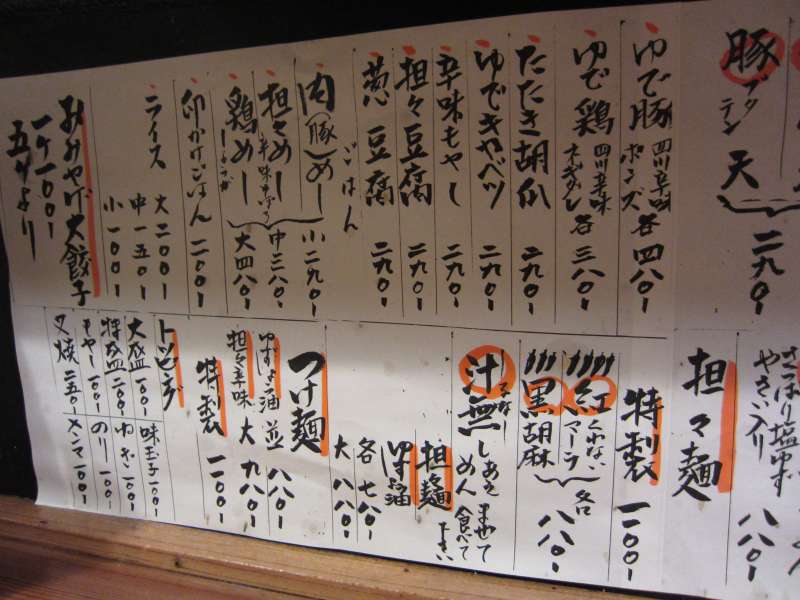 豚
ブタ
テン
天
二九〇-
ゆで豚
四川辛味
ポンズ
各
四八〇-
ゆで鶏
四川辛味
ネギダレ
各
三八〇-
たたき胡瓜
二九〇-
ゆでキャベツ
二九〇-
辛味モヤシ
二九〇-
担々豆腐
二九〇-
葱豆腐
二九〇-
ごはん
肉(豚)めし
小二九〇-
担々めし
辛味そぼろ
中三八〇-
鶏めし
しょうが
大四八〇-
卵かけごはん
二〇〇-
ライス
大二〇〇-
中一五〇-
小一〇〇-
おみやげ大餃子
一ケ一〇〇-
五ケより
さっぱり塩ゆず
やさい入り
八八〇-
担々麺
特製
一一〇〇-
紅
くれない
マーラー
黒胡麻
各
八八〇-
汁無
しるなし
担々麺
しあえめん
まぜて
食べて
下さい
ゆずしょう油
各七八〇-
大八八〇-
つけ麺
ゆずしょう油
並八八〇-
担々辛味
大九八〇-
特製
一一〇〇-
トッピング
大盛一〇〇-
味玉子一〇〇-
特盛二〇〇-
ねぎ一〇〇-
もやし一〇〇-
のり一〇〇-
叉焼二五〇-
メンマ一〇〇-